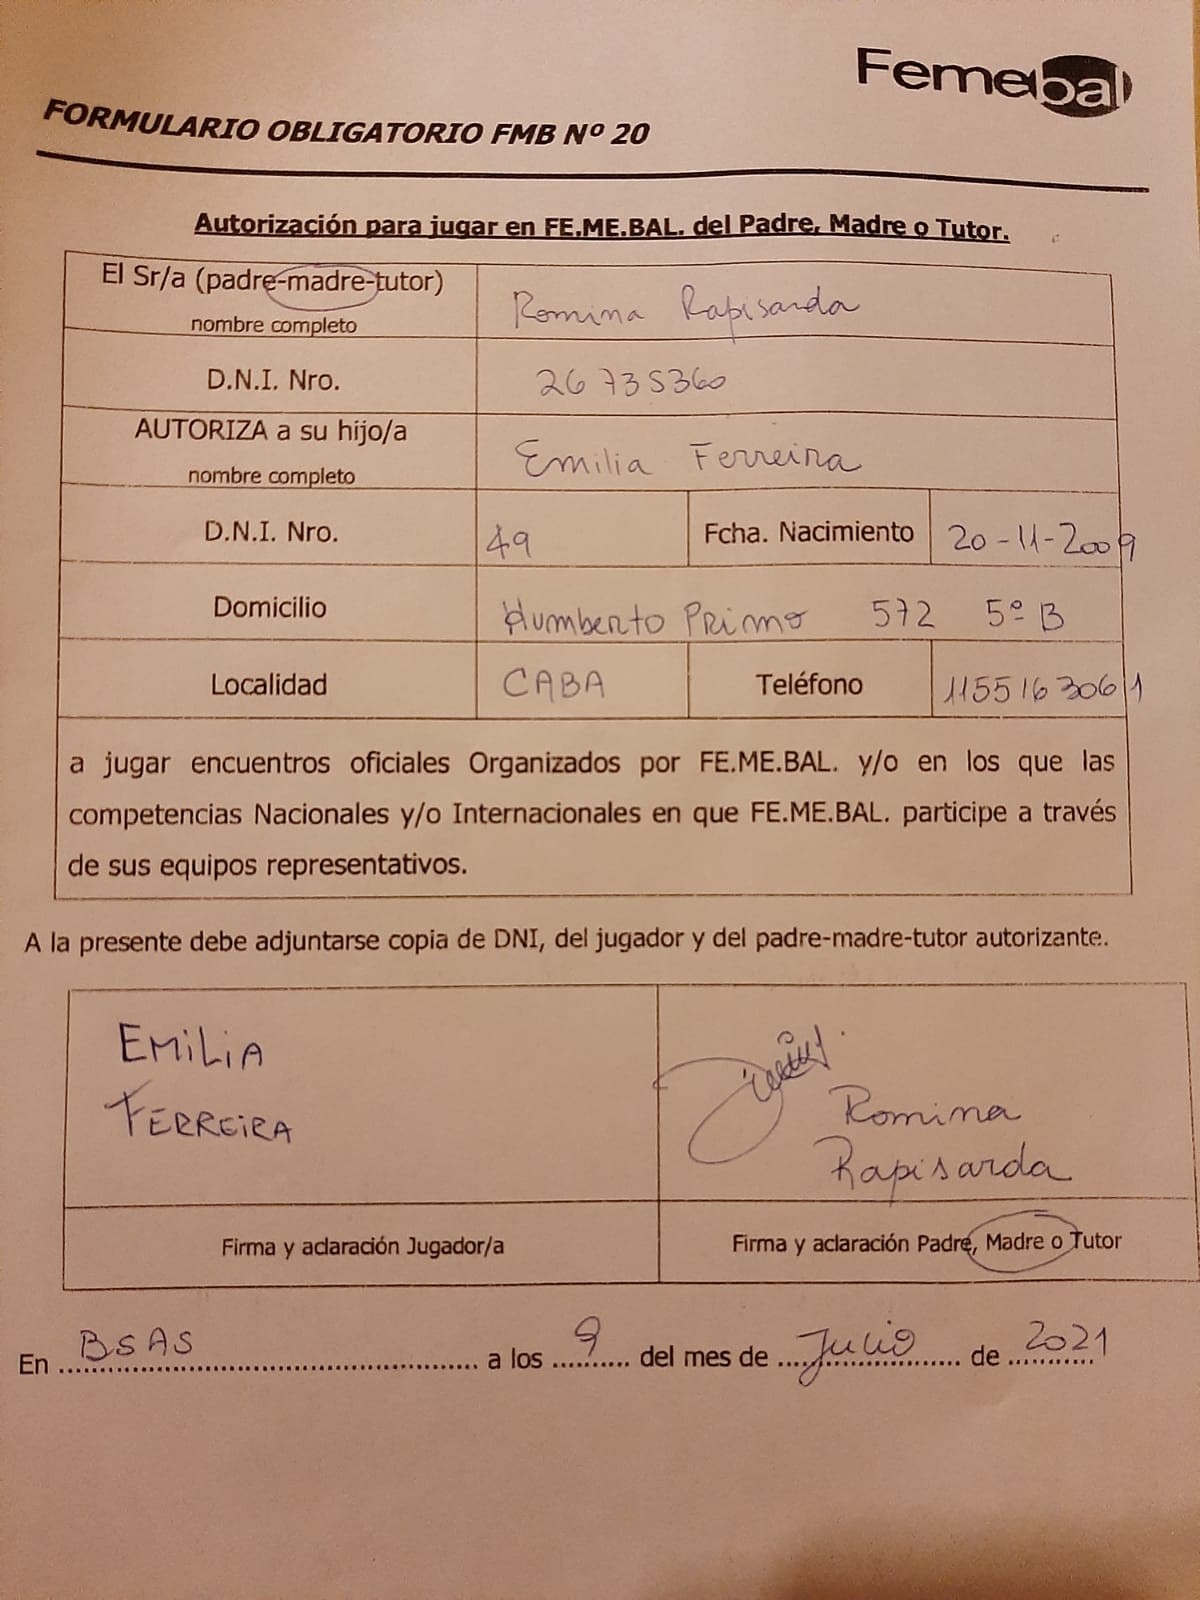 Femebal
FORMULARIO OBLIGATORIO FMB Nº 20
Autorización para jugar en FE.ME.BAL. del Padre, Madre o Tutor.
El Sr/a (padre-madre-tutor)
nombre completo
Romina Rapisarda
D.N.I. Nro.
26735360
AUTORIZA a su hijo/a
nombre completo
Emilia Ferreira
D.N.I. Nro.
49
Fcha. Nacimiento
20-11-2009
Domicilio
Humberto Primo 572 5º B
Localidad
CABA
Teléfono
1155163061
a jugar encuentros oficiales Organizados por FE.ME.BAL. y/o en los que las
competencias Nacionales y/o Internacionales en que FE.ME.BAL. participe a través
de sus equipos representativos.
A la presente debe adjuntarse copia de DNI, del jugador y del padre-madre-tutor autorizante.
EMILIA
FERREIRA
Romina
Rapisarda
Firma y aclaración Jugador/a
Firma y aclaración Padre, Madre o Tutor
En BSAS a los 9 del mes de Julio de 2021